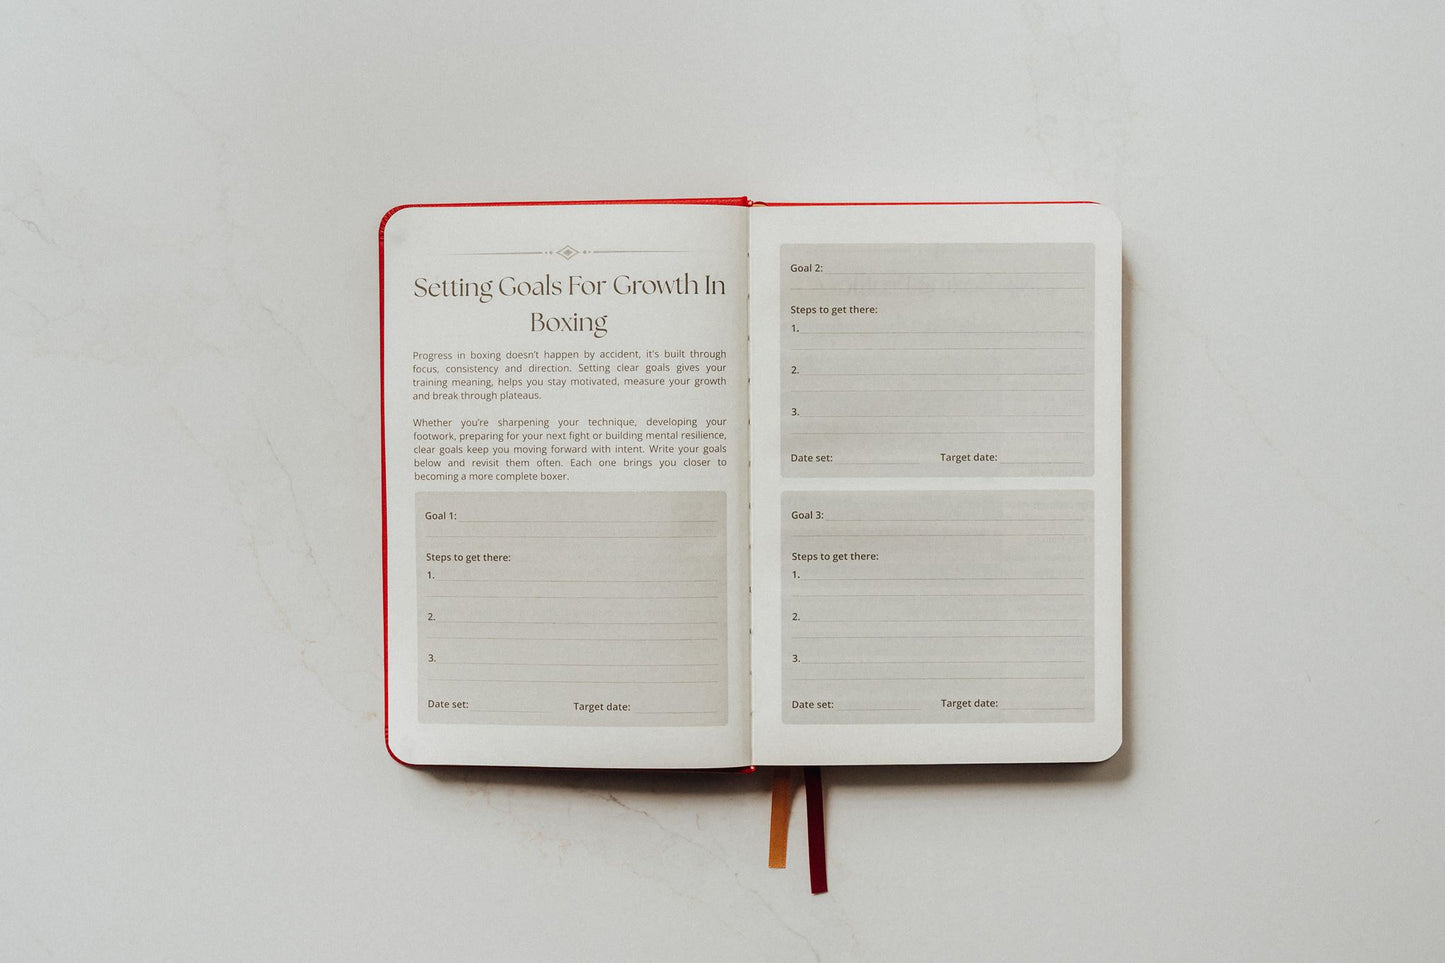 Setting Goals For Growth In
Boxing
Progress in boxing doesn't happen by accident, it's built through
focus, consistency and direction. Setting clear goals gives your
training meaning, helps you stay motivated, measure your growth
and break through plateaus.
Whether you're sharpening your technique, developing your
footwork, preparing for your next fight or building mental resilience,
clear goals keep you moving forward with intent. Write your goals
below and revisit them often. Each one brings you closer to
becoming a more complete boxer.
Goal 1:
Steps to get there:
1.
2.
3.
Date set: Target date:
Goal 2:
Steps to get there:
1.
2.
3.
Date set: Target date:
Goal 3:
Steps to get there:
1.
2.
3.
Date set: Target date: